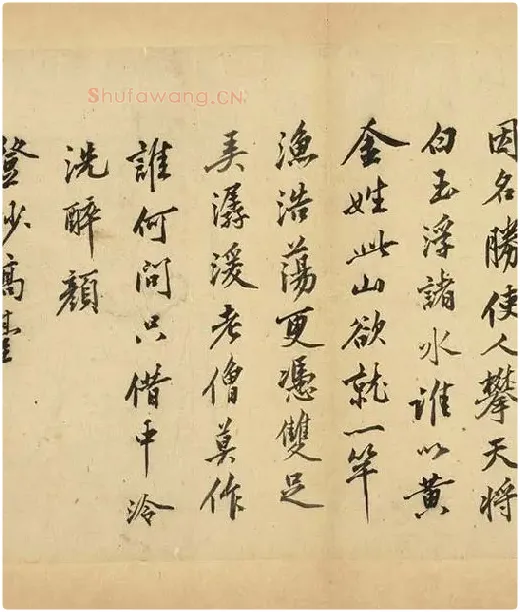 Shufawang.CN
因名勝使人攀天將
白玉浮諸水誰以黃
金姓此山欲就一竿
漁浩蕩更憑雙足
弄潺湲老僧莫作
誰何問只借中泠
洗醉顏
登妙高臺